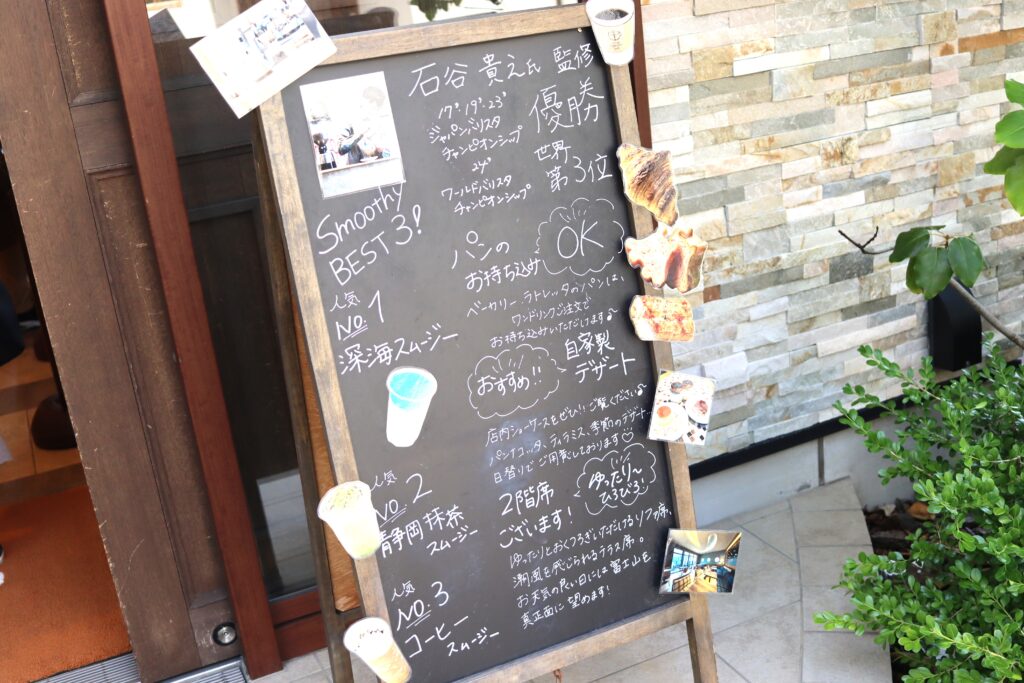 石谷 貴之氏 監修
17° 19° 23°
ジャパンバリスタ
チャンピオンシップ
優勝
24°
ワールドバリスタ
チャンピオンシップ
世界
第3位
Smoothy
BEST 3!
人気
NO. 1
深海スムージー
人気
NO. 2
静岡抹茶
スムージー
人気
NO. 3
コーヒー
スムージー
パンの
お持ち込み
OK
ベーカリー ラトレッタのパンは、
ワンドリンクご注文で
お持ち込みいただけます♪
おすすめ!!
自家製
デザート
店内ショーケースをぜひ!! ご覧ください♪
パンナコッタ、ティラミス、季節のデザート...
日替りでご用意しております♡
2階席
ございます!
ゆったり〜
ひろびろ!
ゆったりとおくつろぎいただけるソファ席、
潮風を感じられるテラス席。
お天気の良い日には富士山を
真正面に望めます!